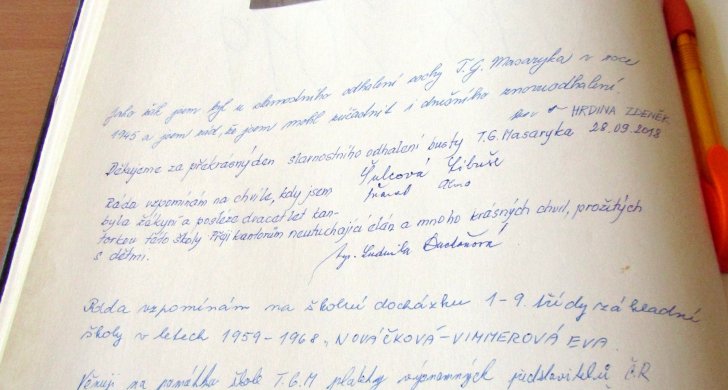 Jako žák jsem byl u slavnostního odhalení sochy T.G. Masaryka v roce
1945 a jsem rád, že jsem mohl zúčadnit i dnešního znovuodhalení.
HRDINA ZDENĚK
Děkujeme za překrásný den slavnostního odhalení busty T.G. Masaryka 28.09.2018
Šulcová Libuše
Ráda vzpomínám na chvíle, kdy jsem
byla žákyní a posléze dvacet let kan-
torkou této školy. Přeji kantorům neutuchající elán a mnoho krásných chvil, prožitých
s dětmi.
Ludmila
Ráda vzpomínám na školní docházku 1-9. třídy základní
školy v letech 1959-1968, NOVÁČKOVÁ-VIMMEROVÁ EVA.
Věnuji na památku škole T.G.M plakety významných představitelů ČR